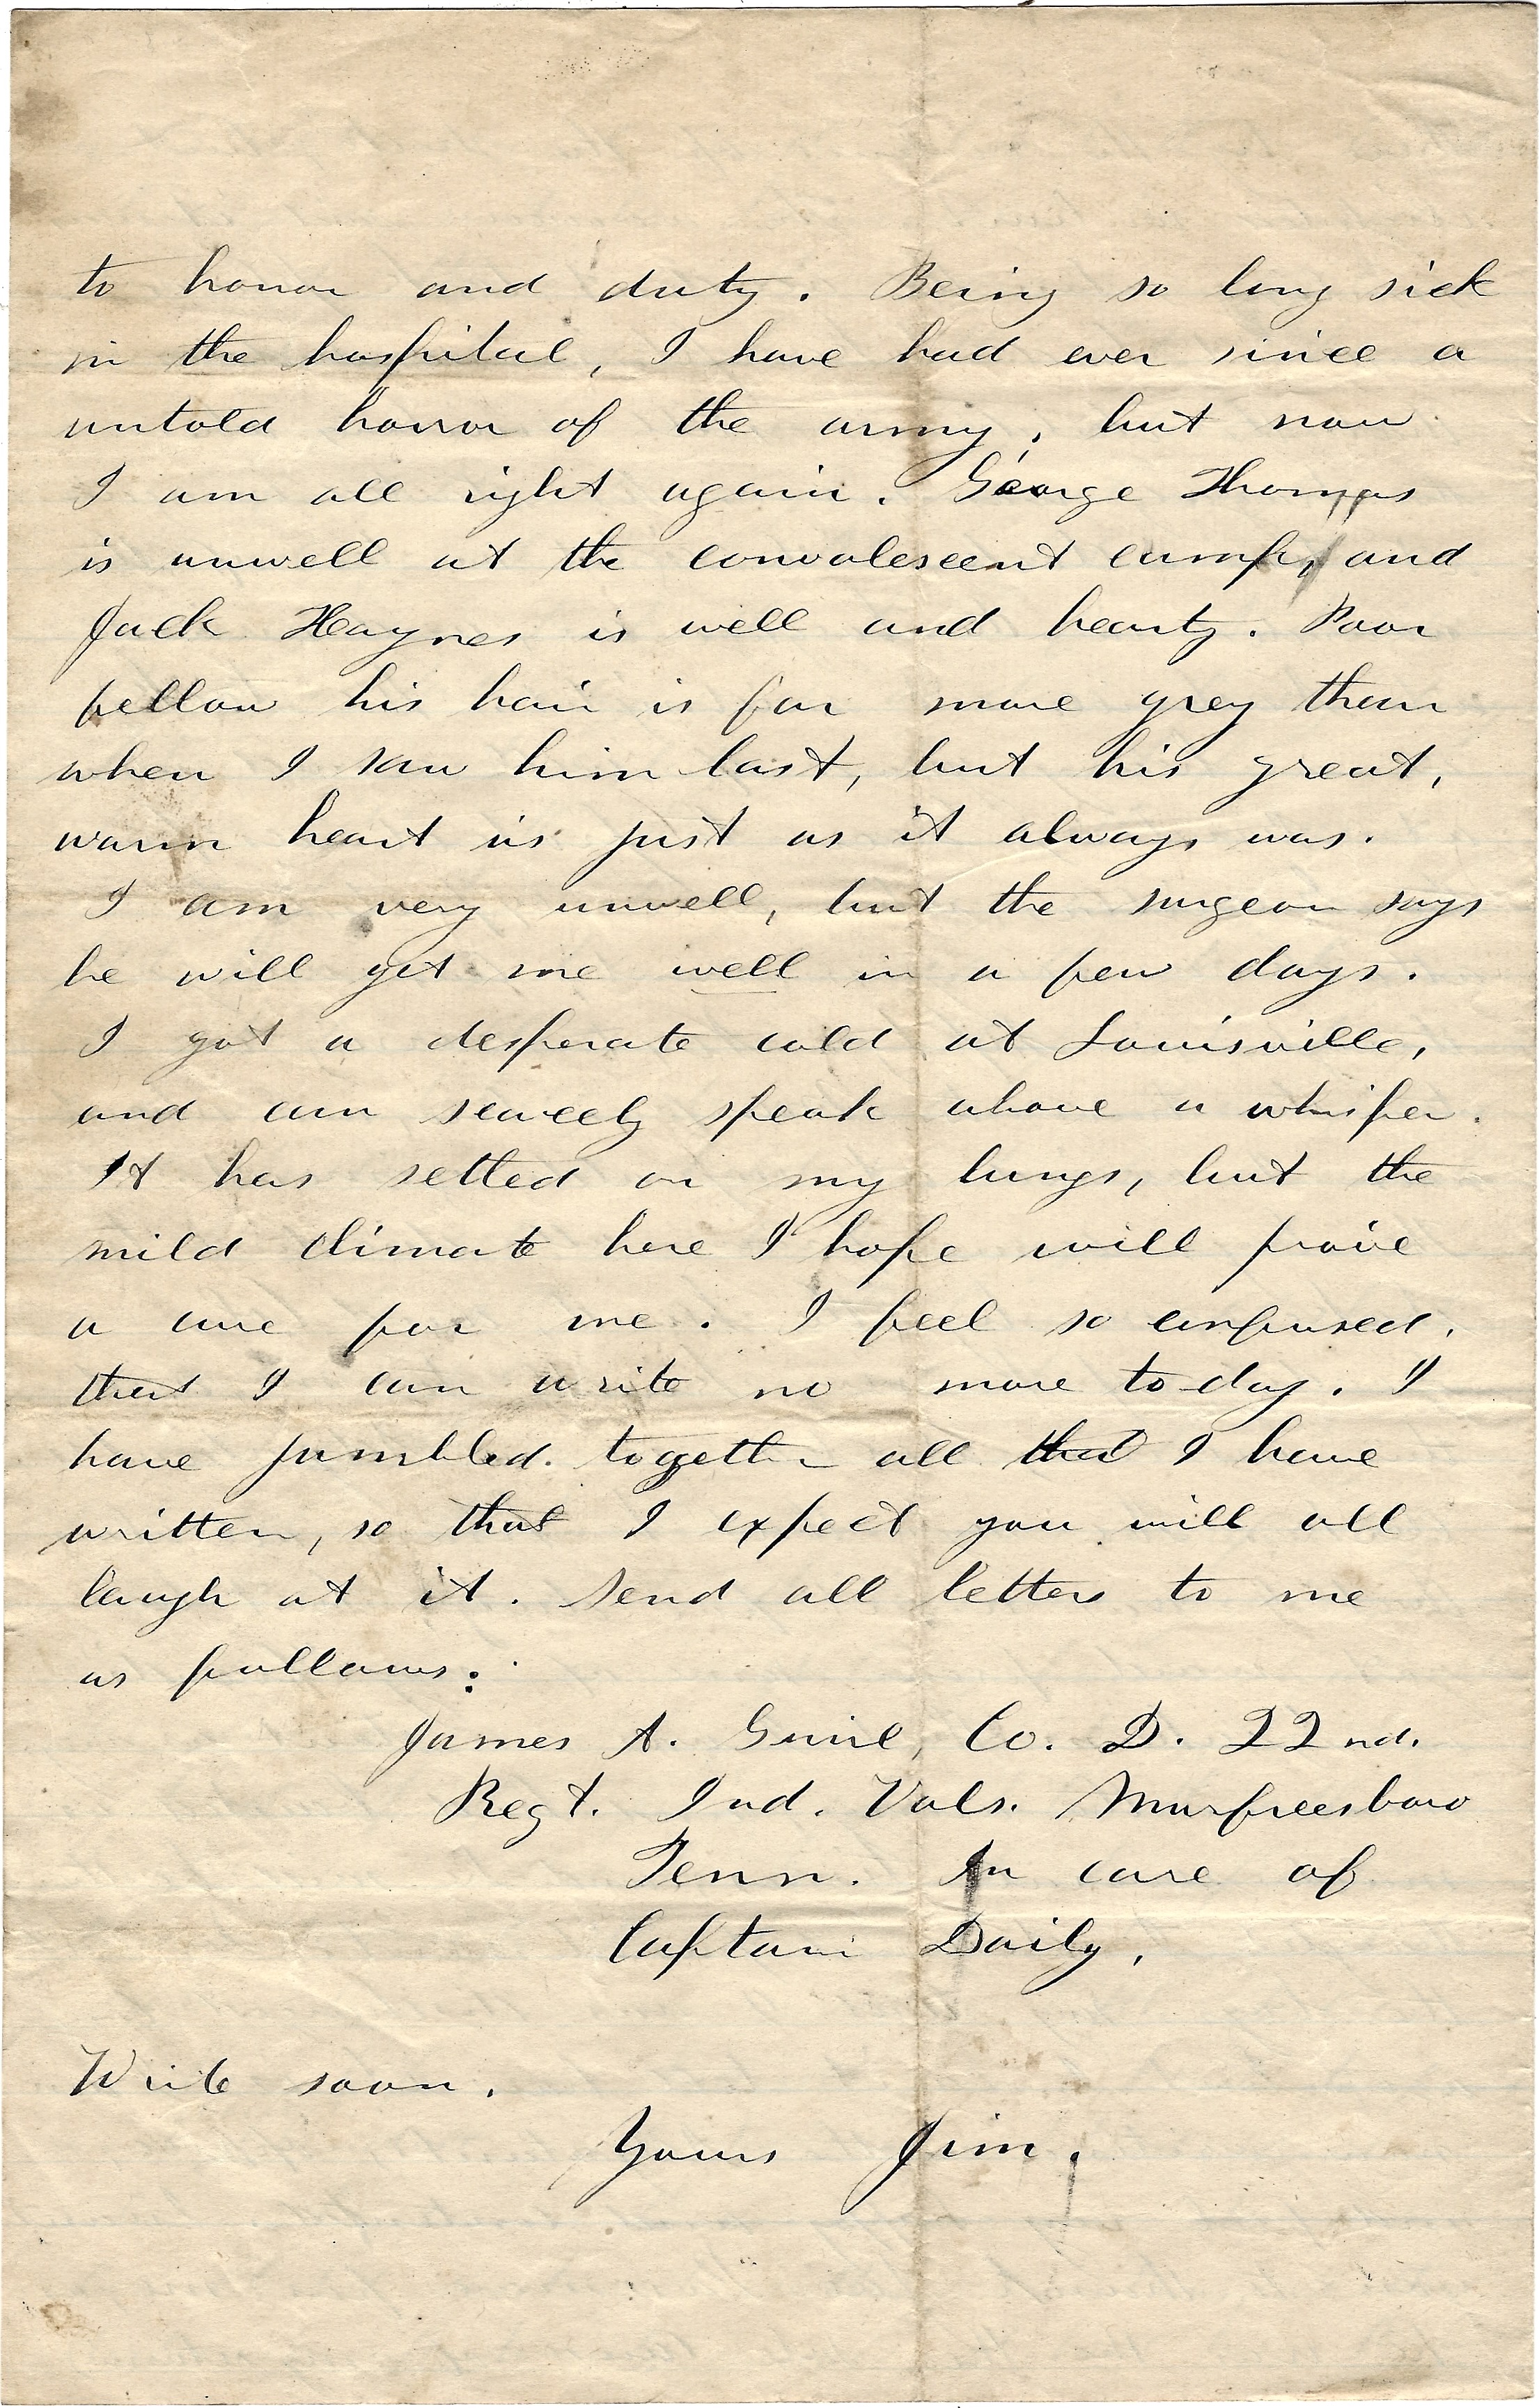 to honor and duty. Being so long sick
in the hospital, I have had ever since a
untold horror of the army, but now
I am all right again. George Thomas
is unwell at the convalescent camp, and
Jack Haynes is well and hearty. Poor
fellow his hair is far more grey than
when I saw him last, but his great,
warm heart is just as it always was.
I am very unwell, but the surgeon says
he will get me well in a few days.
I got a desperate cold at Louisville,
and can scarcely speak above a whisper.
It has setled on my lungs, but the
mild climate here I hope will prove
a cure for me. I feel so confused,
that I can write no more to day. I
have jumbled together all that I have
written, so that I expect you will all
laugh at it. Send all letters to me
as follows:
James A. Co. D. 22nd.
Regt. Ind. Vols. Murfreesboro
Tenn. In care of
Captain Daily,
Write soon.
Yours Jim.